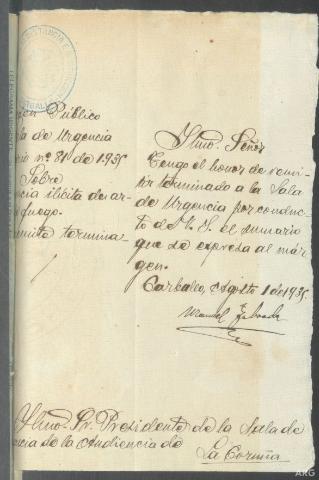 en Público
la de Urgencia
nº 81 de 1935
Sobre
ncia ilícita de ar
fuego.
remite termina
Ilmo. Señor
Tengo el honor de remi
tir terminado a la Sala
de Urgencia por conduc
to de V. I. el sumario
que se expresa al már
gen.
Carballo, Agosto 1 de 1935.
Manuel
Ilmo. Sr. Presidente de la Sala de
ncia de la Audiencia de
La Coruña
ARG